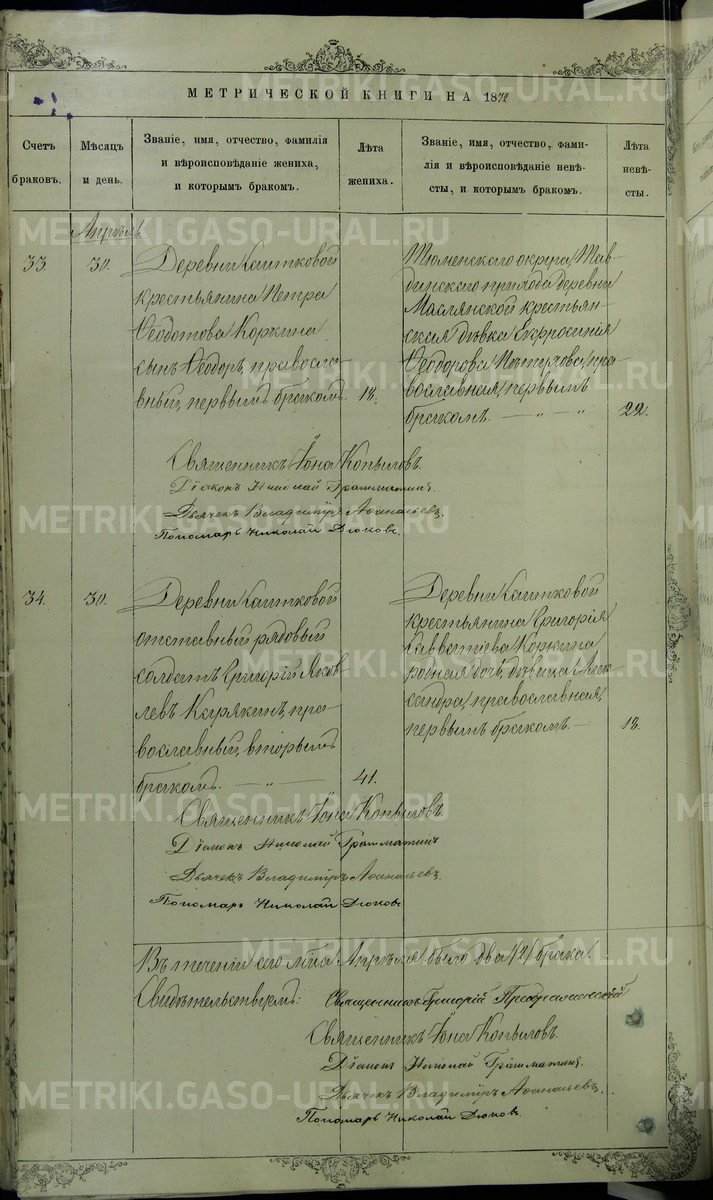 МЕТРИЧЕСКОЙ КНИГИ НА 1872
Счетъ
браковъ.
Мѣсяцъ
и день.
Званіе, имя, отчество, фамилія
и вѣроисповѣданіе жениха,
и которымъ бракомъ.
Лѣта
жениха.
Званіе, имя, отчество, фами-
лія и вѣроисповѣданіе невѣ-
сты, и которымъ бракомъ.
Лѣта
невѣ-
сты.
Апрѣль
33.
30.
Деревни Каптковой
крестьянина Петра
Ѳеодотова Коркина
сынъ Ѳеодоръ, правосла-
вный, первымъ бракомъ.
18.
Тюменскаго округа, Тав-
динскаго прихода деревни
Маслянской крестьян-
ская дѣвка Евфросинія
Ѳеодорова Пѣтухова, пра-
вославная, первымъ
бракомъ. — „ — „ —
22.
Священникъ Іона Копыловъ.
Діаконъ Николай Грамматинъ.
Дьячекъ Владиміръ Аѳанасьевъ.
Пономарь Николай Дюковъ.
34.
30.
Деревни Каптковой
отставный рядовый
солдатъ Григорій Яков-
левъ Карякинъ, пра-
вославный, вторымъ
бракомъ. — „ —
41.
Деревни Каптковой
крестьянина Григорія
Савватіева Коркина
родная дочь, дѣвица Алек-
сандра, православная,
первымъ бракомъ. —
18.
Священникъ Іона Копыловъ.
Діаконъ Николай Грамматинъ
Дьячекъ Владиміръ Аѳанасьевъ.
Пономарь Николай Дюковъ
Въ теченіи сего м-ца Апрѣля было два /2/ брака.
Свидѣтельствуемъ:
Священникъ Григорій
Священникъ Іона Копыловъ.
Діаконъ Николай Грамматинъ.
Дьячекъ Владиміръ Аѳанасьевъ.
Пономарь Николай Дюковъ.
METRIKI.GASO-URAL.RU